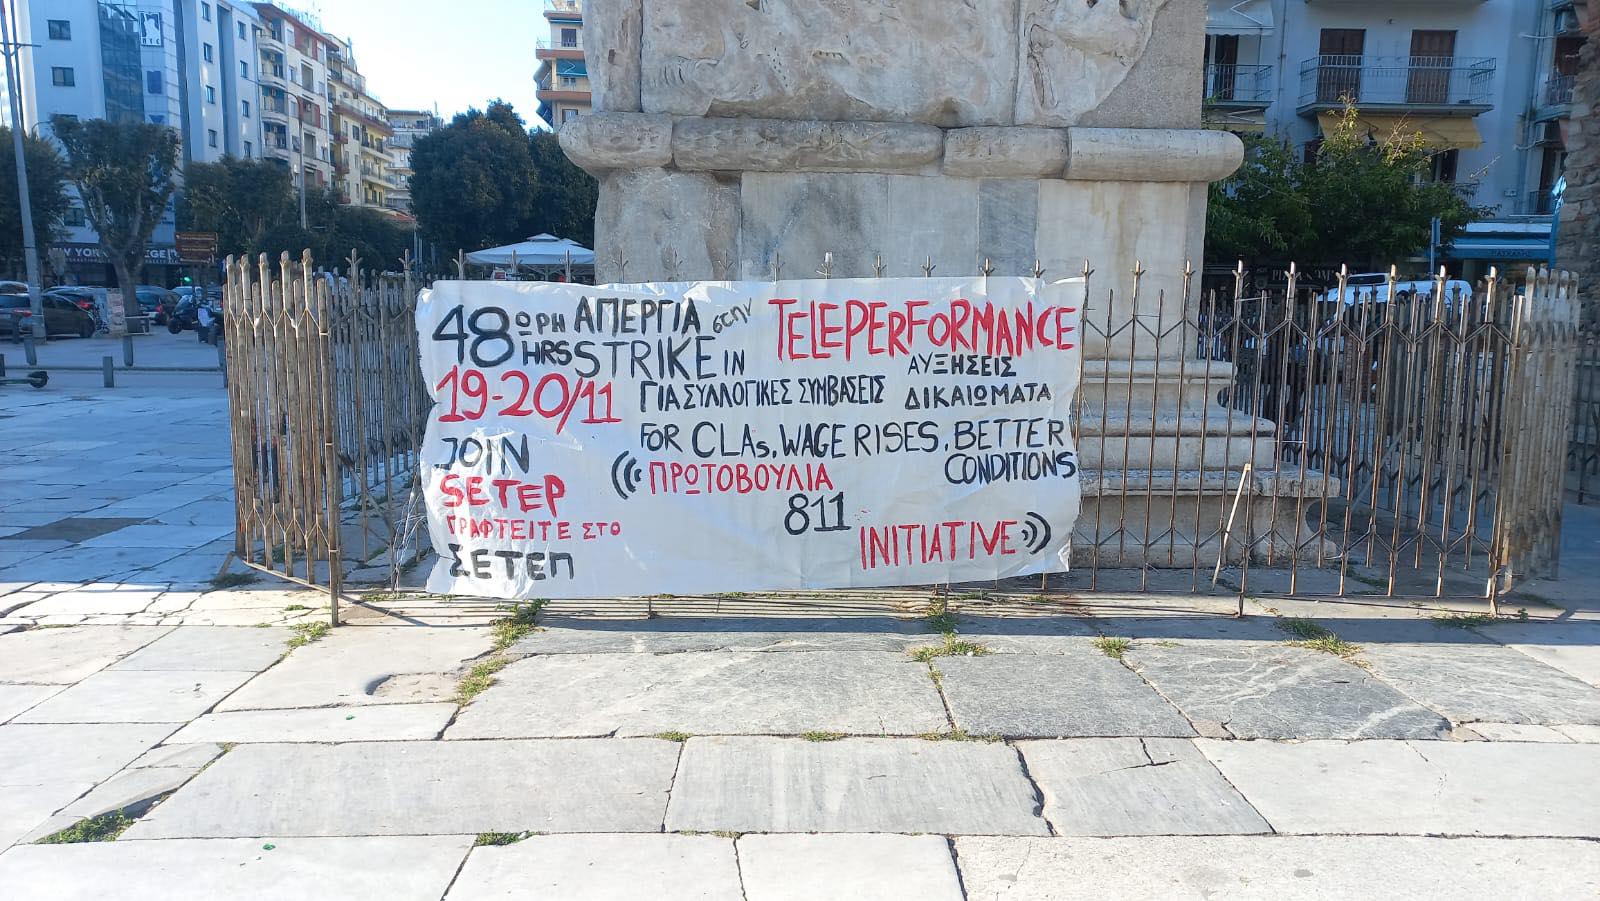 48 ΩΡΗ ΑΠΕΡΓΙΑ στην TELEPERFORMANCE
HRS STRIKE IN
19-20/11 ΓΙΑ ΣΥΛΛΟΓΙΚΕΣ ΣΥΜΒΑΣΕΙΣ ΑΥΞΗΣΕΙΣ
ΔΙΚΑΙΩΜΑΤΑ
FOR CLAs, WAGE RISES, BETTER
CONDITIONS
JOIN
SETEP
ΓΡΑΦΤΕΙΤΕ ΣΤΟ
ΣΕΤΕΠ
ΠΡΩΤΟΒΟΥΛΙΑ
811
INITIATIVE